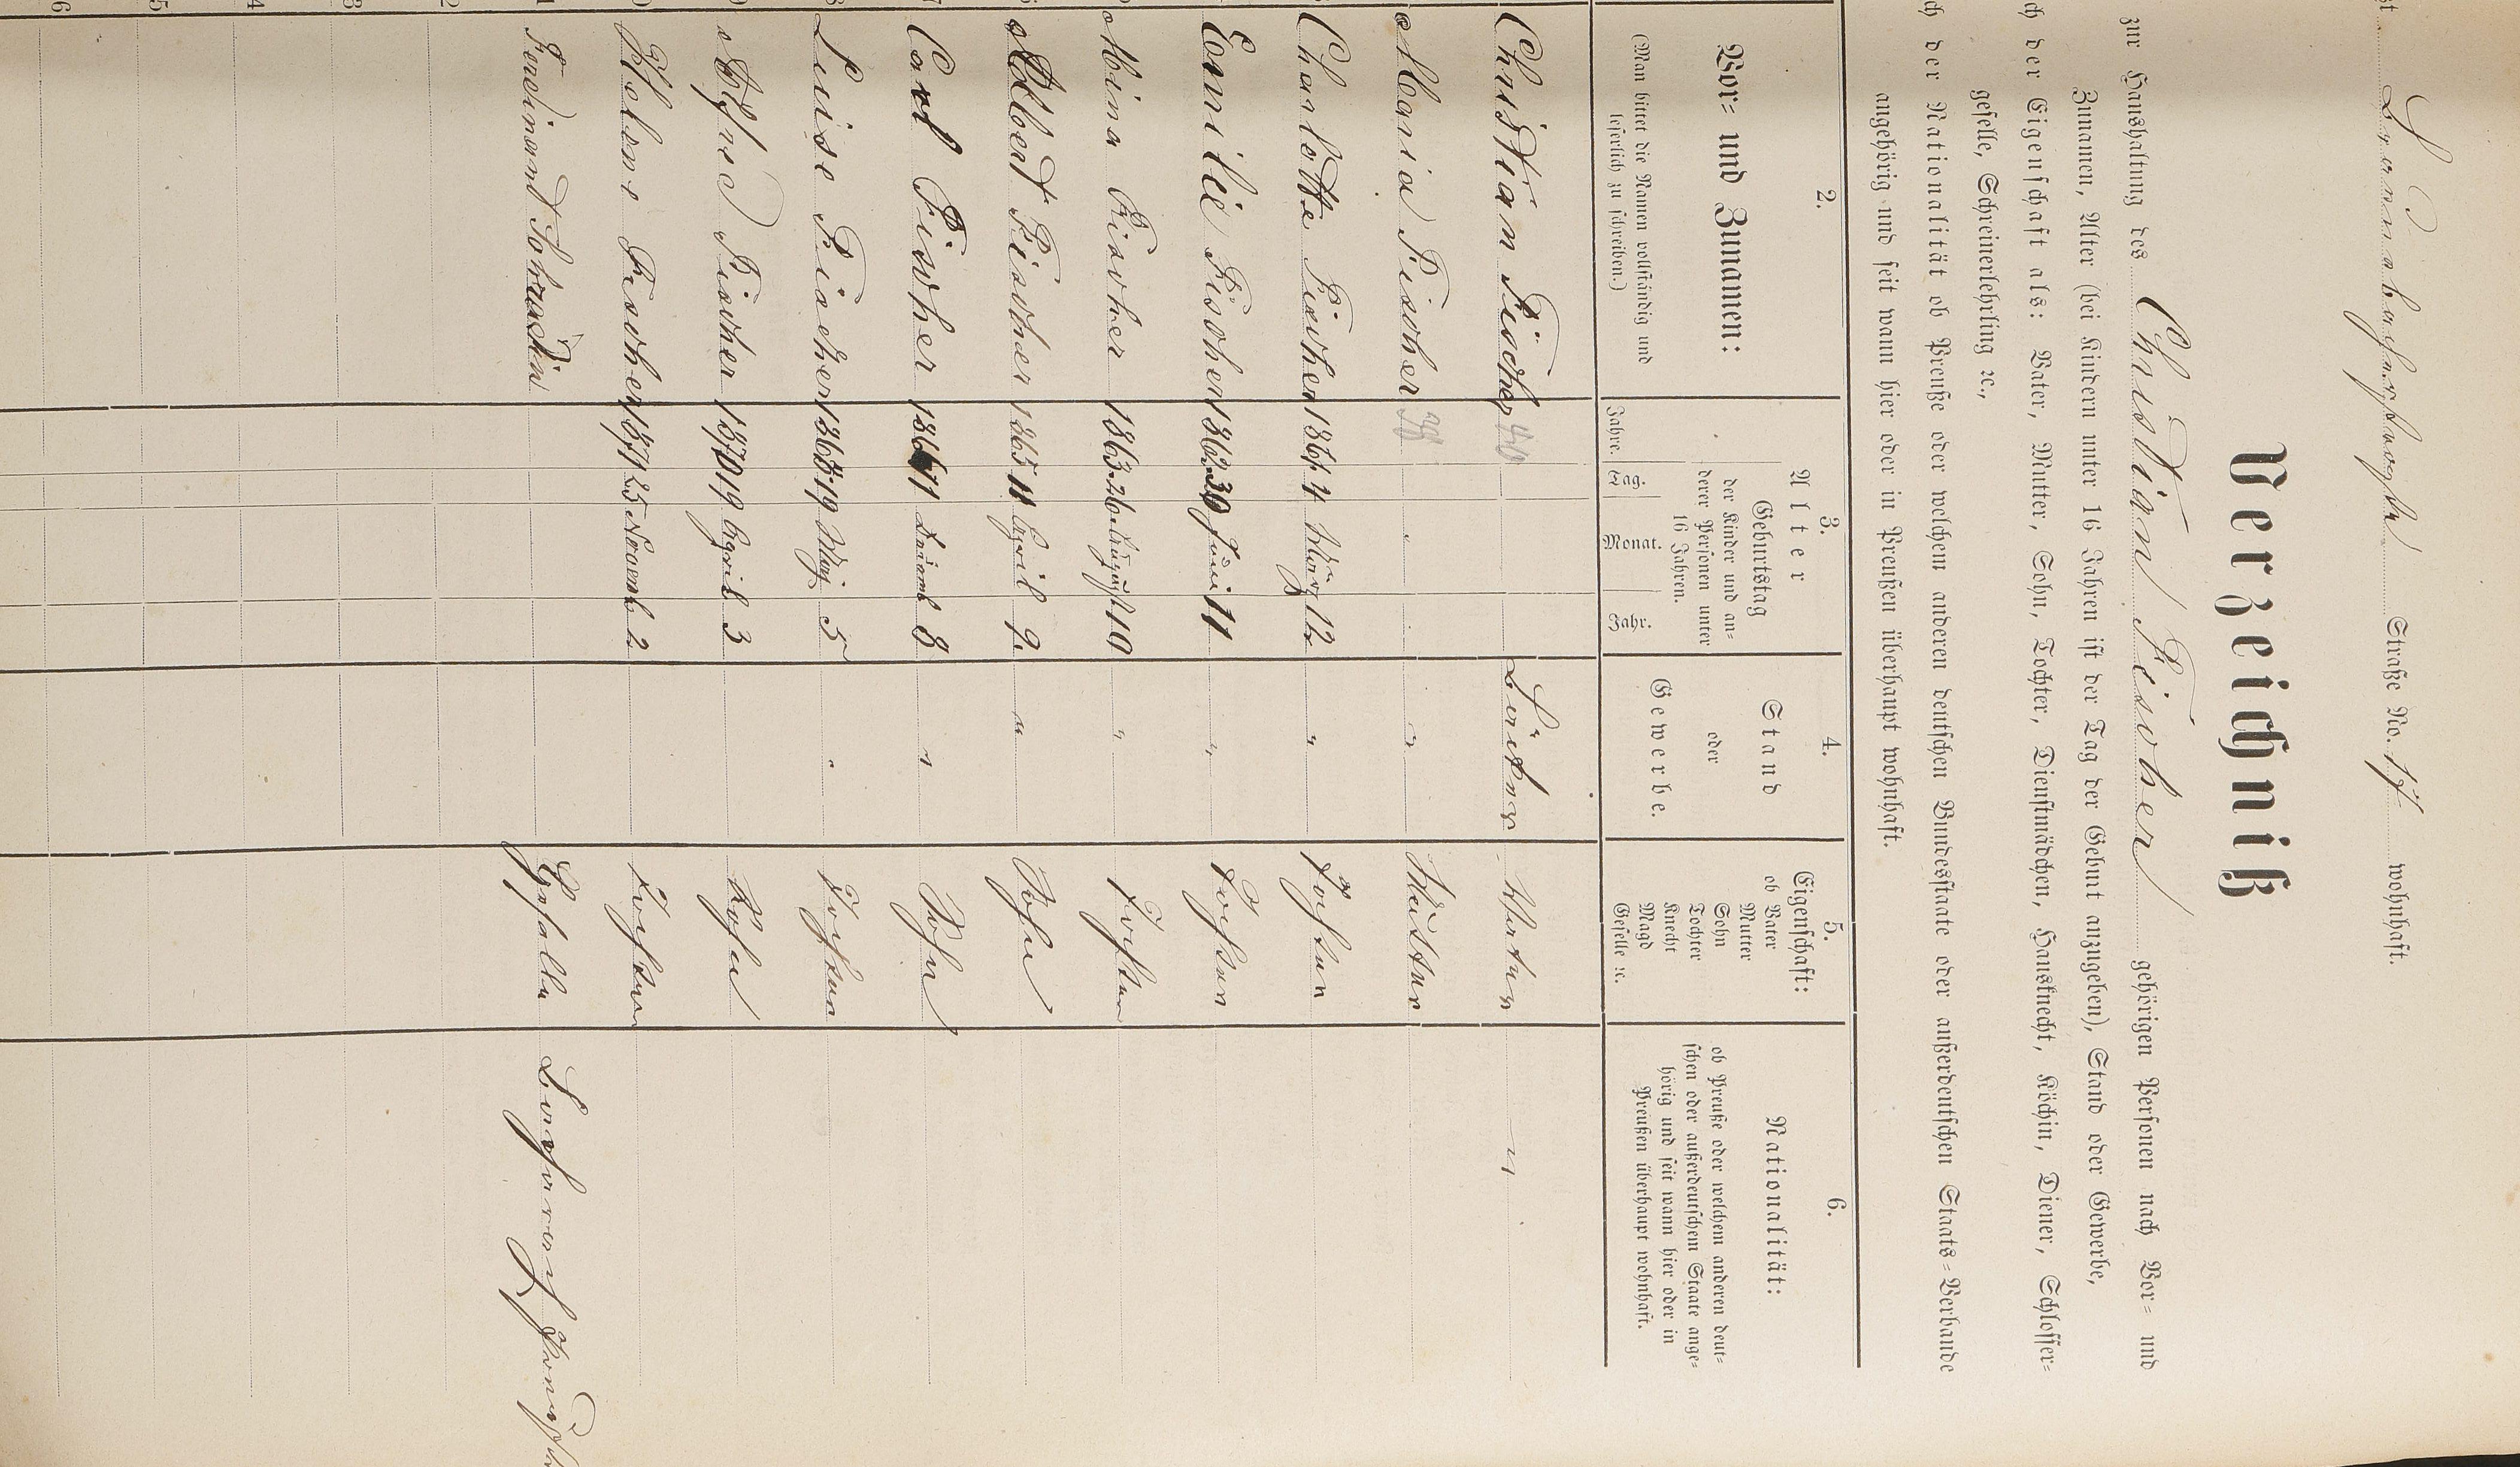 Straße No. 17 wohnhaft.
Verzeichniß
zur Haushaltung des Christian Fischer gehörigen Personen nach Vor= und
Zunamen, Alter (bei Kindern unter 16 Jahren ist der Tag der Geburt anzugeben), Stand oder Gewerbe,
der Eigenschaft als: Vater, Mutter, Sohn, Tochter, Dienstmädchen, Hausknecht, Köchin, Diener, Schlosser=
geselle, Schreinerlehrling ꝛc.,
der Nationalität ob Preuße oder welchem anderen deutschen Bundesstaate oder außerdeutschen Staats=Verbande
angehörig und seit wann hier oder in Preußen überhaupt wohnhaft.
2. 3. 4. 5. 6.
Vor= und Zunamen:
(Man bittet die Namen vollständig und
leserlich zu schreiben.)
Alter
Geburtstag
der Kinder und an=
derer Personen unter
16 Jahren.
Jahre. Tag. Monat. Jahr.
Stand
oder
Gewerbe.
Eigenschaft:
ob Vater
Mutter
Sohn
Tochter
Knecht
Magd
Geselle ꝛc.
Nationalität:
ob Preuße oder welchem anderen deut=
schen oder außerdeutschem Staate ange=
hörig und seit wann hier oder in
Preußen überhaupt wohnhaft.
Christian Fischer 40 Vater "
Maria Fischer " Mutter
Charlotte Fischer 1861 4 März 12 " Tochter
Emilie Fischer 1862 30 Juni 11 " Tochter
Mina Fischer 1863 26 August 10 " Tochter
Albert Fischer 1865 11 April 9. " Sohn
Carl Fischer 11 8 " Sohn
Luise Fischer 1868 19 May 5 " Tochter
Alfred Fischer 1870 19 April 3 Sohn
Helene Fischer 1871 25 Novemb 2 Tochter
Ferdinand Geselle
2
3
4
5
6